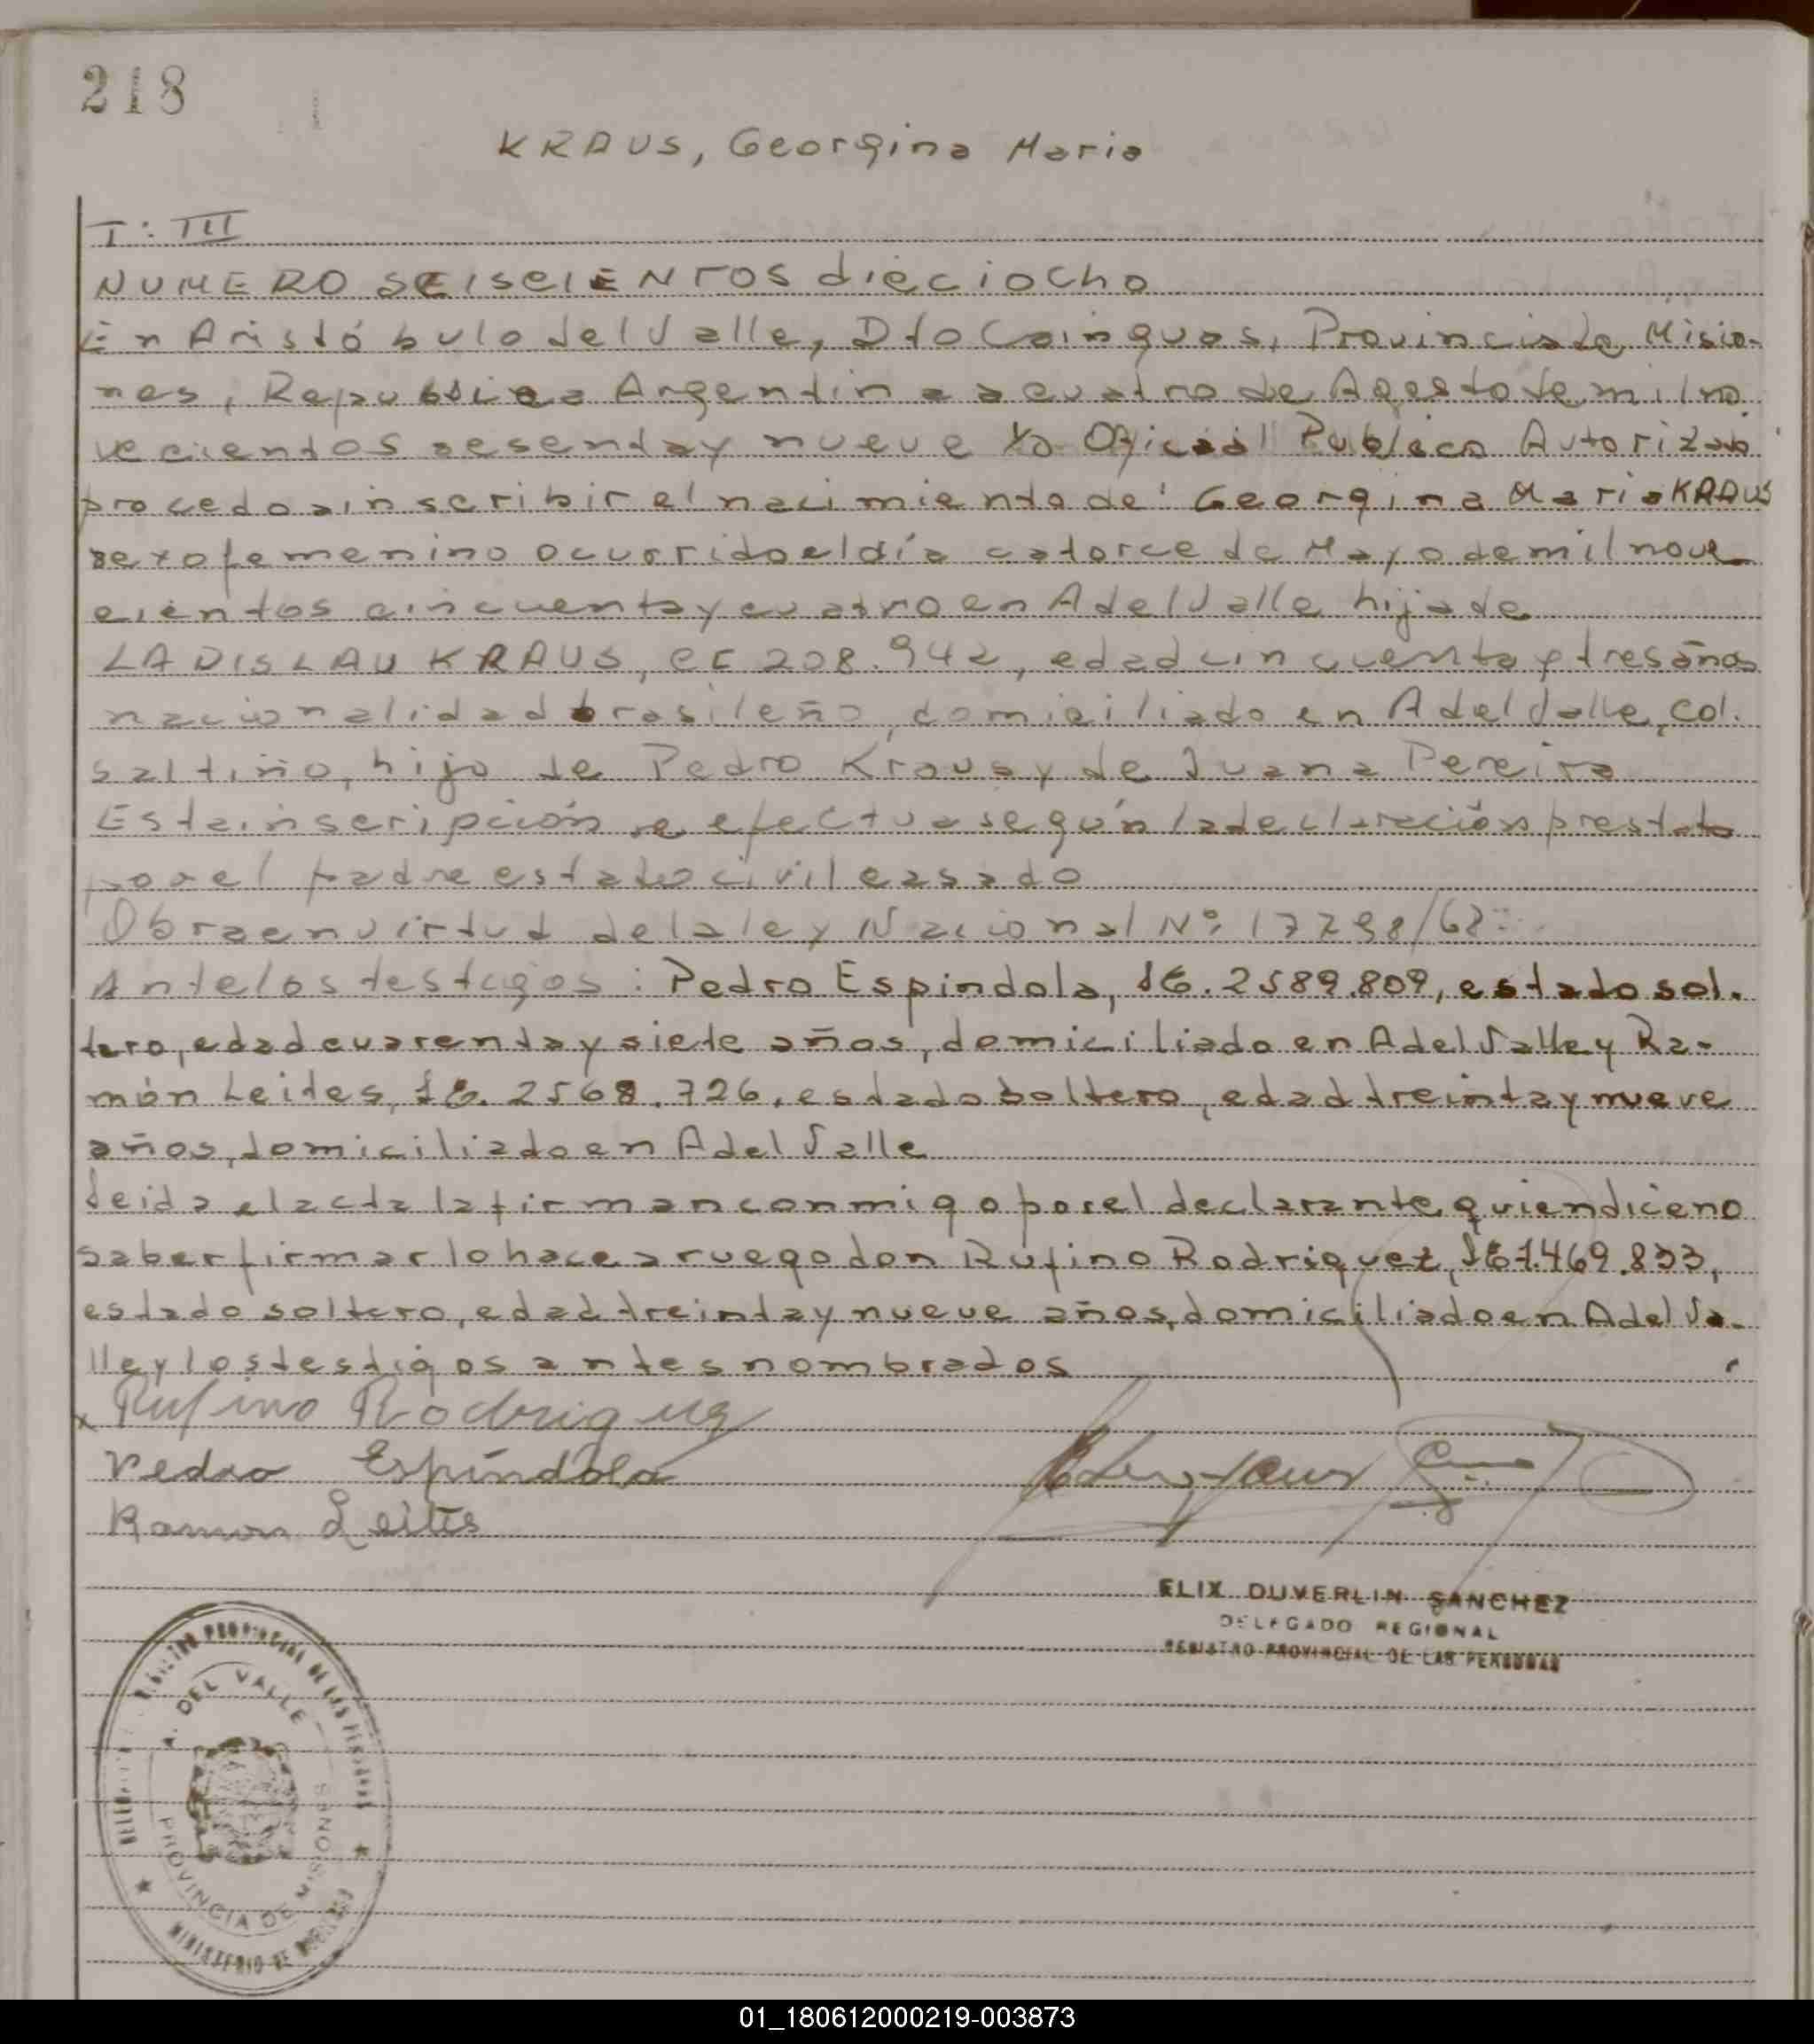 218
KRAUS, Georgina Maria
T: III
NUMERO SEISCIENTOS dieciocho
En Aristóbulo del Valle, Dto Cainguas, Provincia de Misio-
nes, Republica Argentina a cuatro de Agosto de mil no
vecientos sesenta y nueve Yo Oficial Publico Autorizado
procedo a inscribir el nacimiento de: Georgina Maria KRAUS
sexo femenino ocurrido el día catorce de Mayo de mil nove
cientos cincuenta y cuatro en A del Valle hija de
LADISLAU KRAUS, CI 208.942, edad cincuenta y tres años
nacionalidad brasileño, domiciliado en A del Valle, Col.
saltiño, hijo de Pedro Kraus y de Juana Pereira
Esta inscripción se efectua según la declaración prestada
por el padre estado civil casado
Obra en virtud de la ley Nacional Nº
Ante los testigos: Pedro Espindola, 2589.809, estado sol.
tero, edad cuarenta y siete años, domiciliado en A del Valle y Ra-
món Leites, 2568.726, estado soltero, edad treinta y nueve
años, domiciliado en A del Valle
Leida el acta la firman conmigo por el declarante, quien dice no
saber firmar lo hace a ruego don Rufino Rodriguez, 7.469.833,
estado soltero, edad treinta y nueve años, domiciliado en A del Va-
lle y los testigos antes nombrados
x Rufino Rodriguez
Pedro Espíndola
Ramon Leites
ELIX DUVERLIN SANCHEZ
DELEGADO REGIONAL
REGISTRO PROVINCIAL DE LAS PERSONAS
REGISTRO PROVINCIAL DE LAS PERSONAS
A. DEL VALLE
PROVINCIA DE MISIONES
MINISTERIO DE
01_180612000219-003873